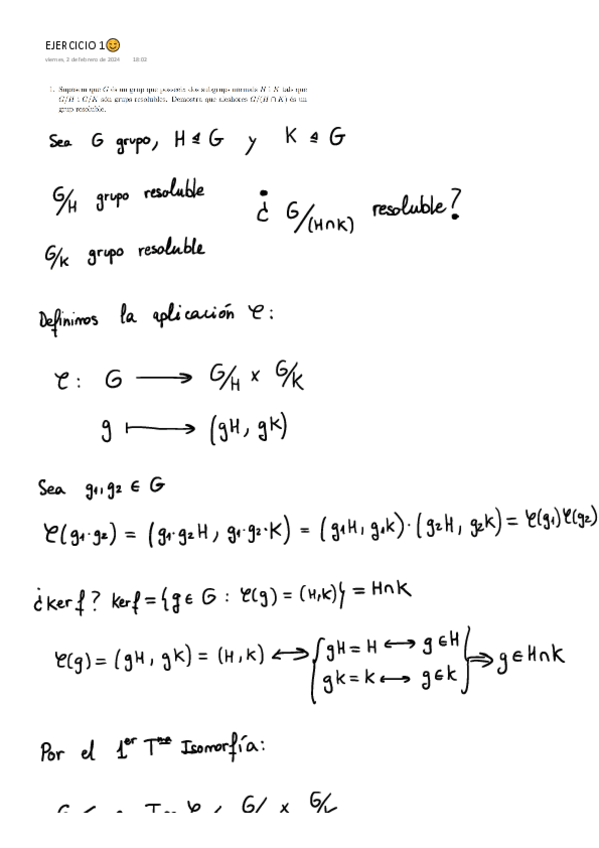 EJERCICIO 1😊
viernes, 2 de febrero de 2024 18:02
1. Supposem que G és un grup que posseeix dos subgrups normals H i K tals que
G/H i G/K són grups resolubles. Demostra que aleshores G/(H ∩ K) és un
grup resoluble.
Sea G grupo, H ⊴ G y K ⊴ G
G/H grupo resoluble
¿ G/(H∩K) resoluble?
G/K grupo resoluble
Definimos la aplicación φ:
φ: G ⟶ G/H x G/K
g ⟼ (gH, gK)
Sea g₁, g₂ ∈ G
φ(g₁·g₂) = (g₁·g₂H, g₁·g₂·K) = (g₁H, g₁K)·(g₂H, g₂K) = φ(g₁)φ(g₂)
¿Ker f? Ker f = {g ∈ G : φ(g) = (H,K)} = H∩K
φ(g) = (gH, gK) = (H, K) ⟷ { gH = H ⟷ g∈H
gK = K ⟷ g∈K } ⇒ g∈H∩K
Por el 1er Tma Isomorfía: